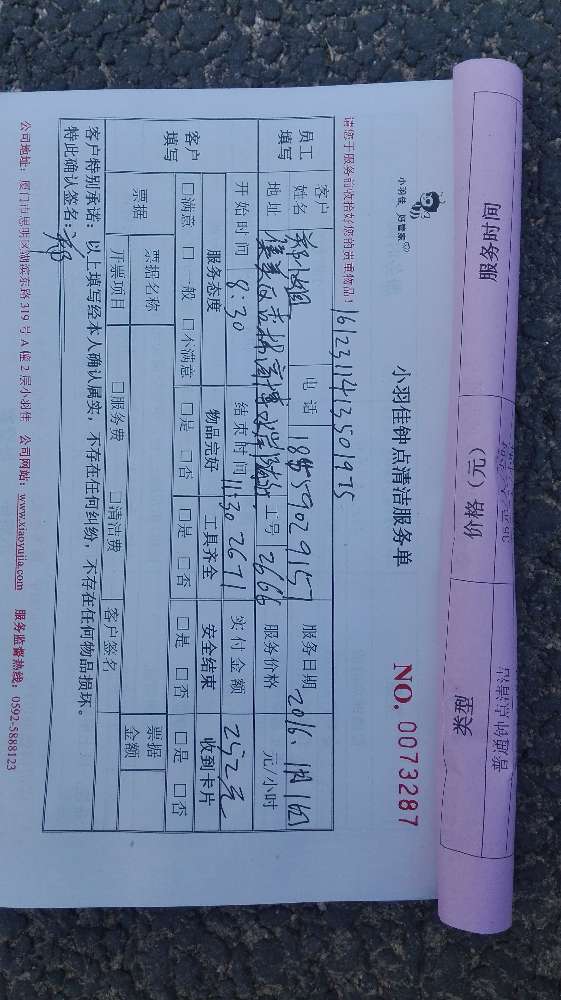 服务时间 价格（元） 类型
小羽佳 好管家
小羽佳钟点清洁服务单 NO. 0073287
请您于服务前收拾好您的贵重物品！ 161231141350 1975
员工填写 客户姓名 郑小姐 电话 18559029157 服务日期 2016.
地址 集美区杏林 工号 2666 服务价格 元/小时
开始时间 8:30 结束时间 11:30 2671 实付金额 252元
客户填写 服务态度 物品完好 工具齐全 安全结束 收到卡片
□满意 □一般 □不满意 □是 □否 □是 □否 □是 □否 □是 □否
票据 票据名称 票据金额
开票项目 □服务费 □清洁费 客户签名
客户特别承诺：以上填写经本人确认属实，不存在任何纠纷，不存在任何物品损坏。
特此确认签名：
公司地址：厦门市思明区湖滨东路 319 号 A 幢 2 层小羽佳 公司网站：www.xiaoyujia.com 服务监督热线：0592-5888123